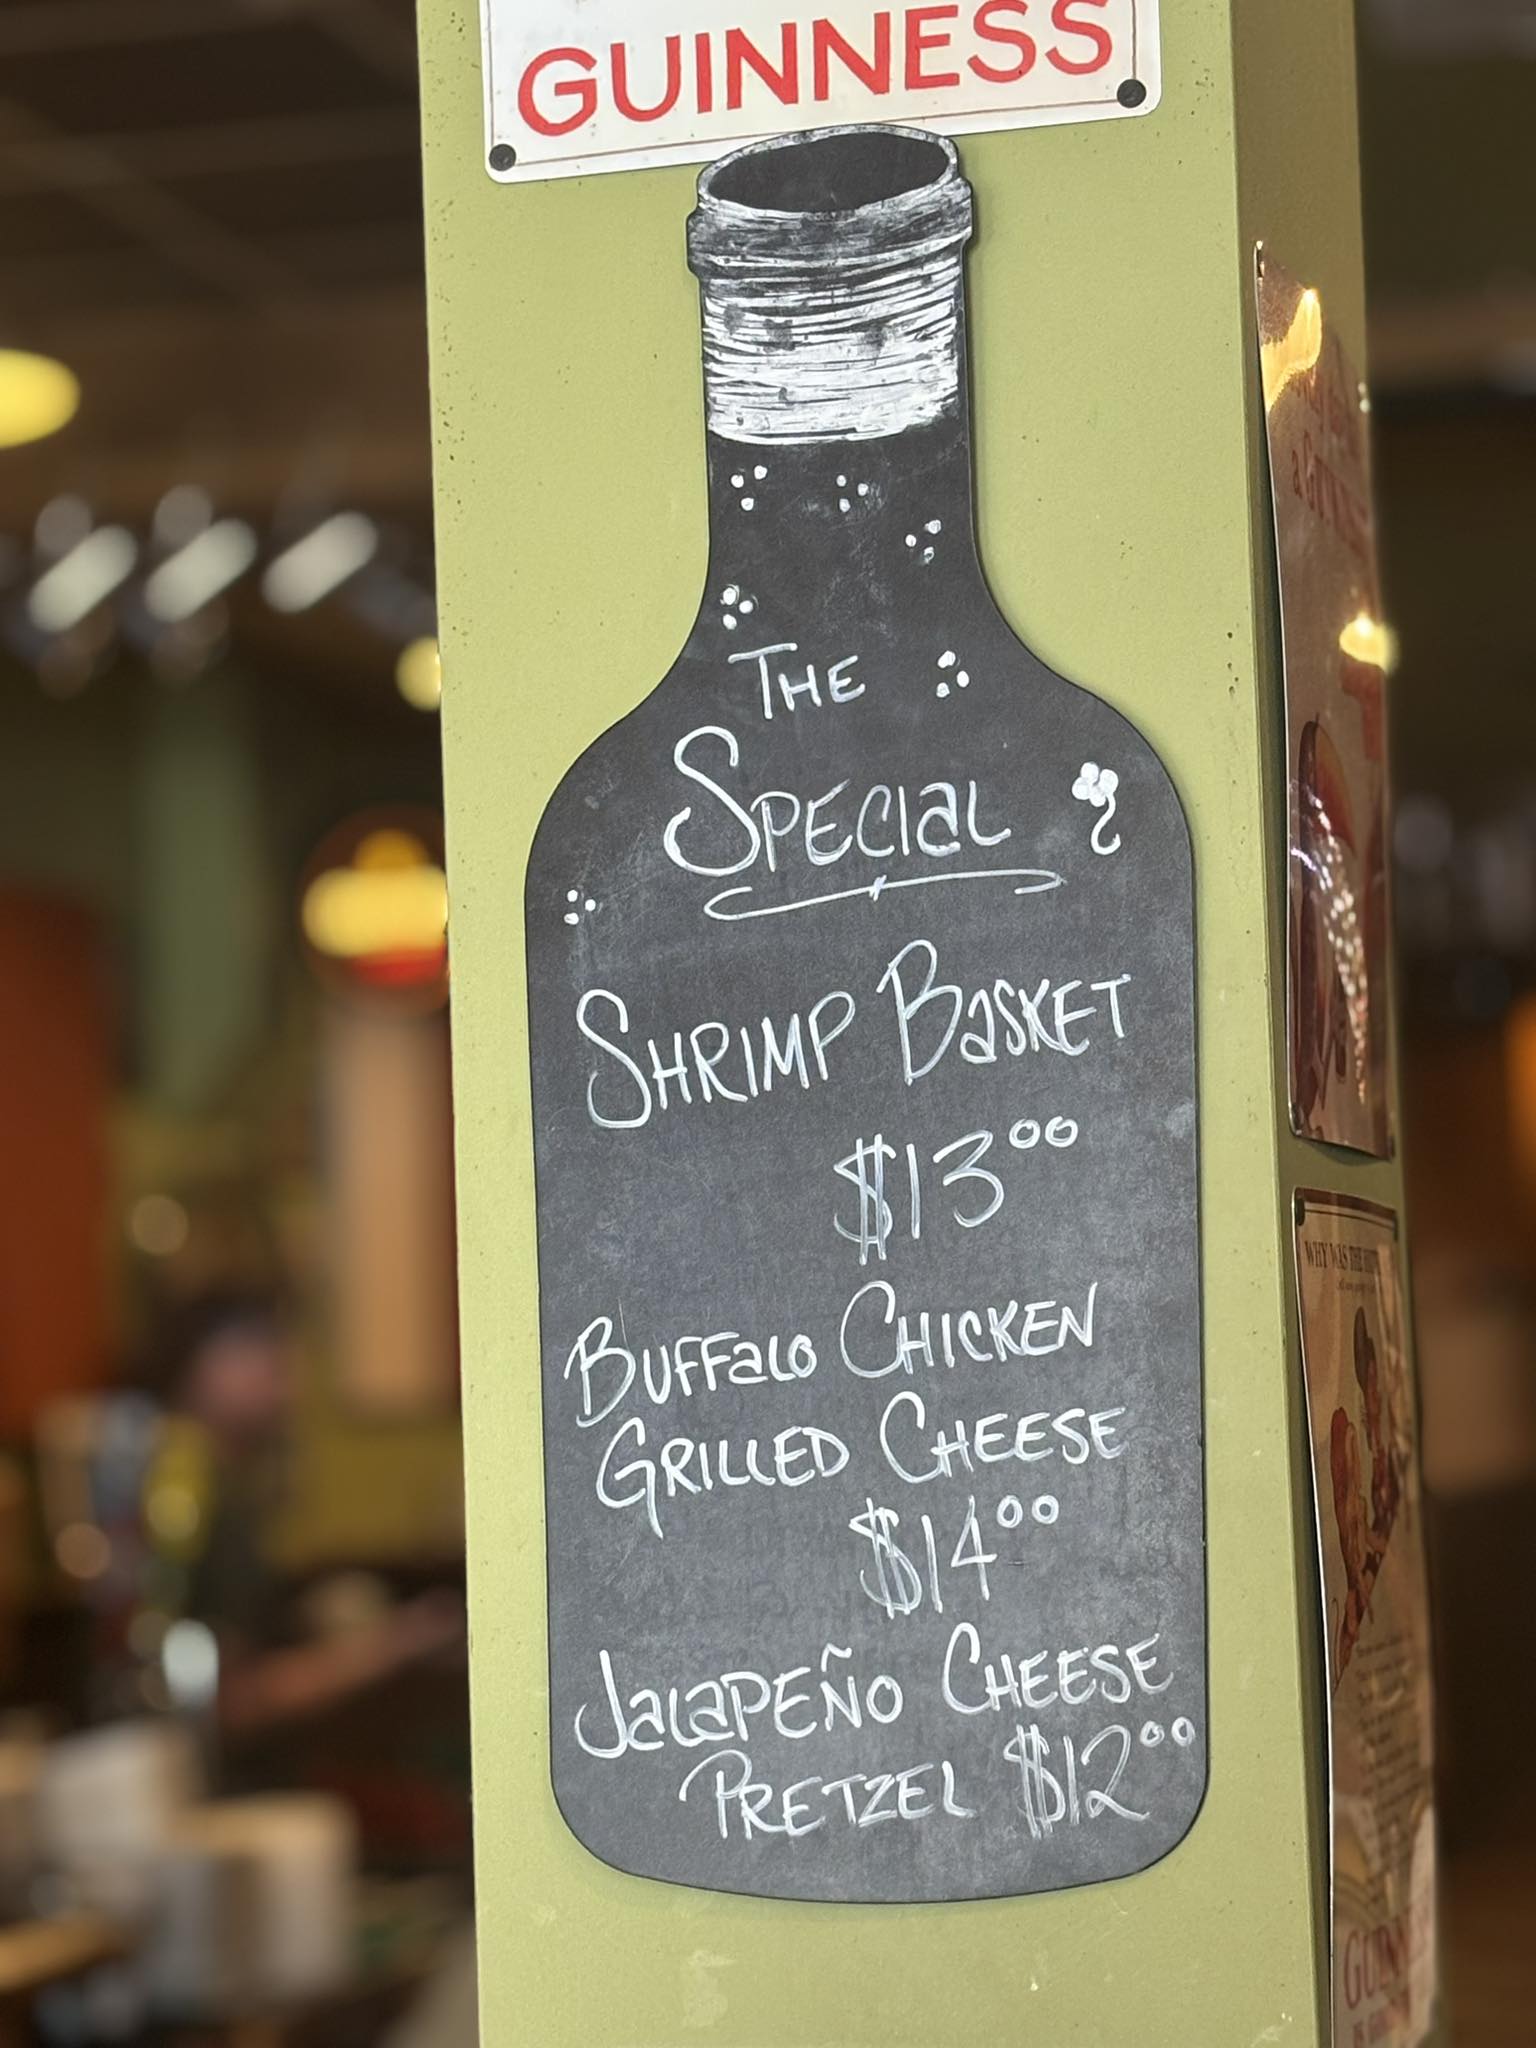 GUINNESS
THE
SPECIAL
SHRIMP BASKET
$13.00
BUFFALO CHICKEN
GRILLED CHEESE
$14.00
JALAPEÑO CHEESE
PRETZEL $12.00
WHY WAS THE
GUIN